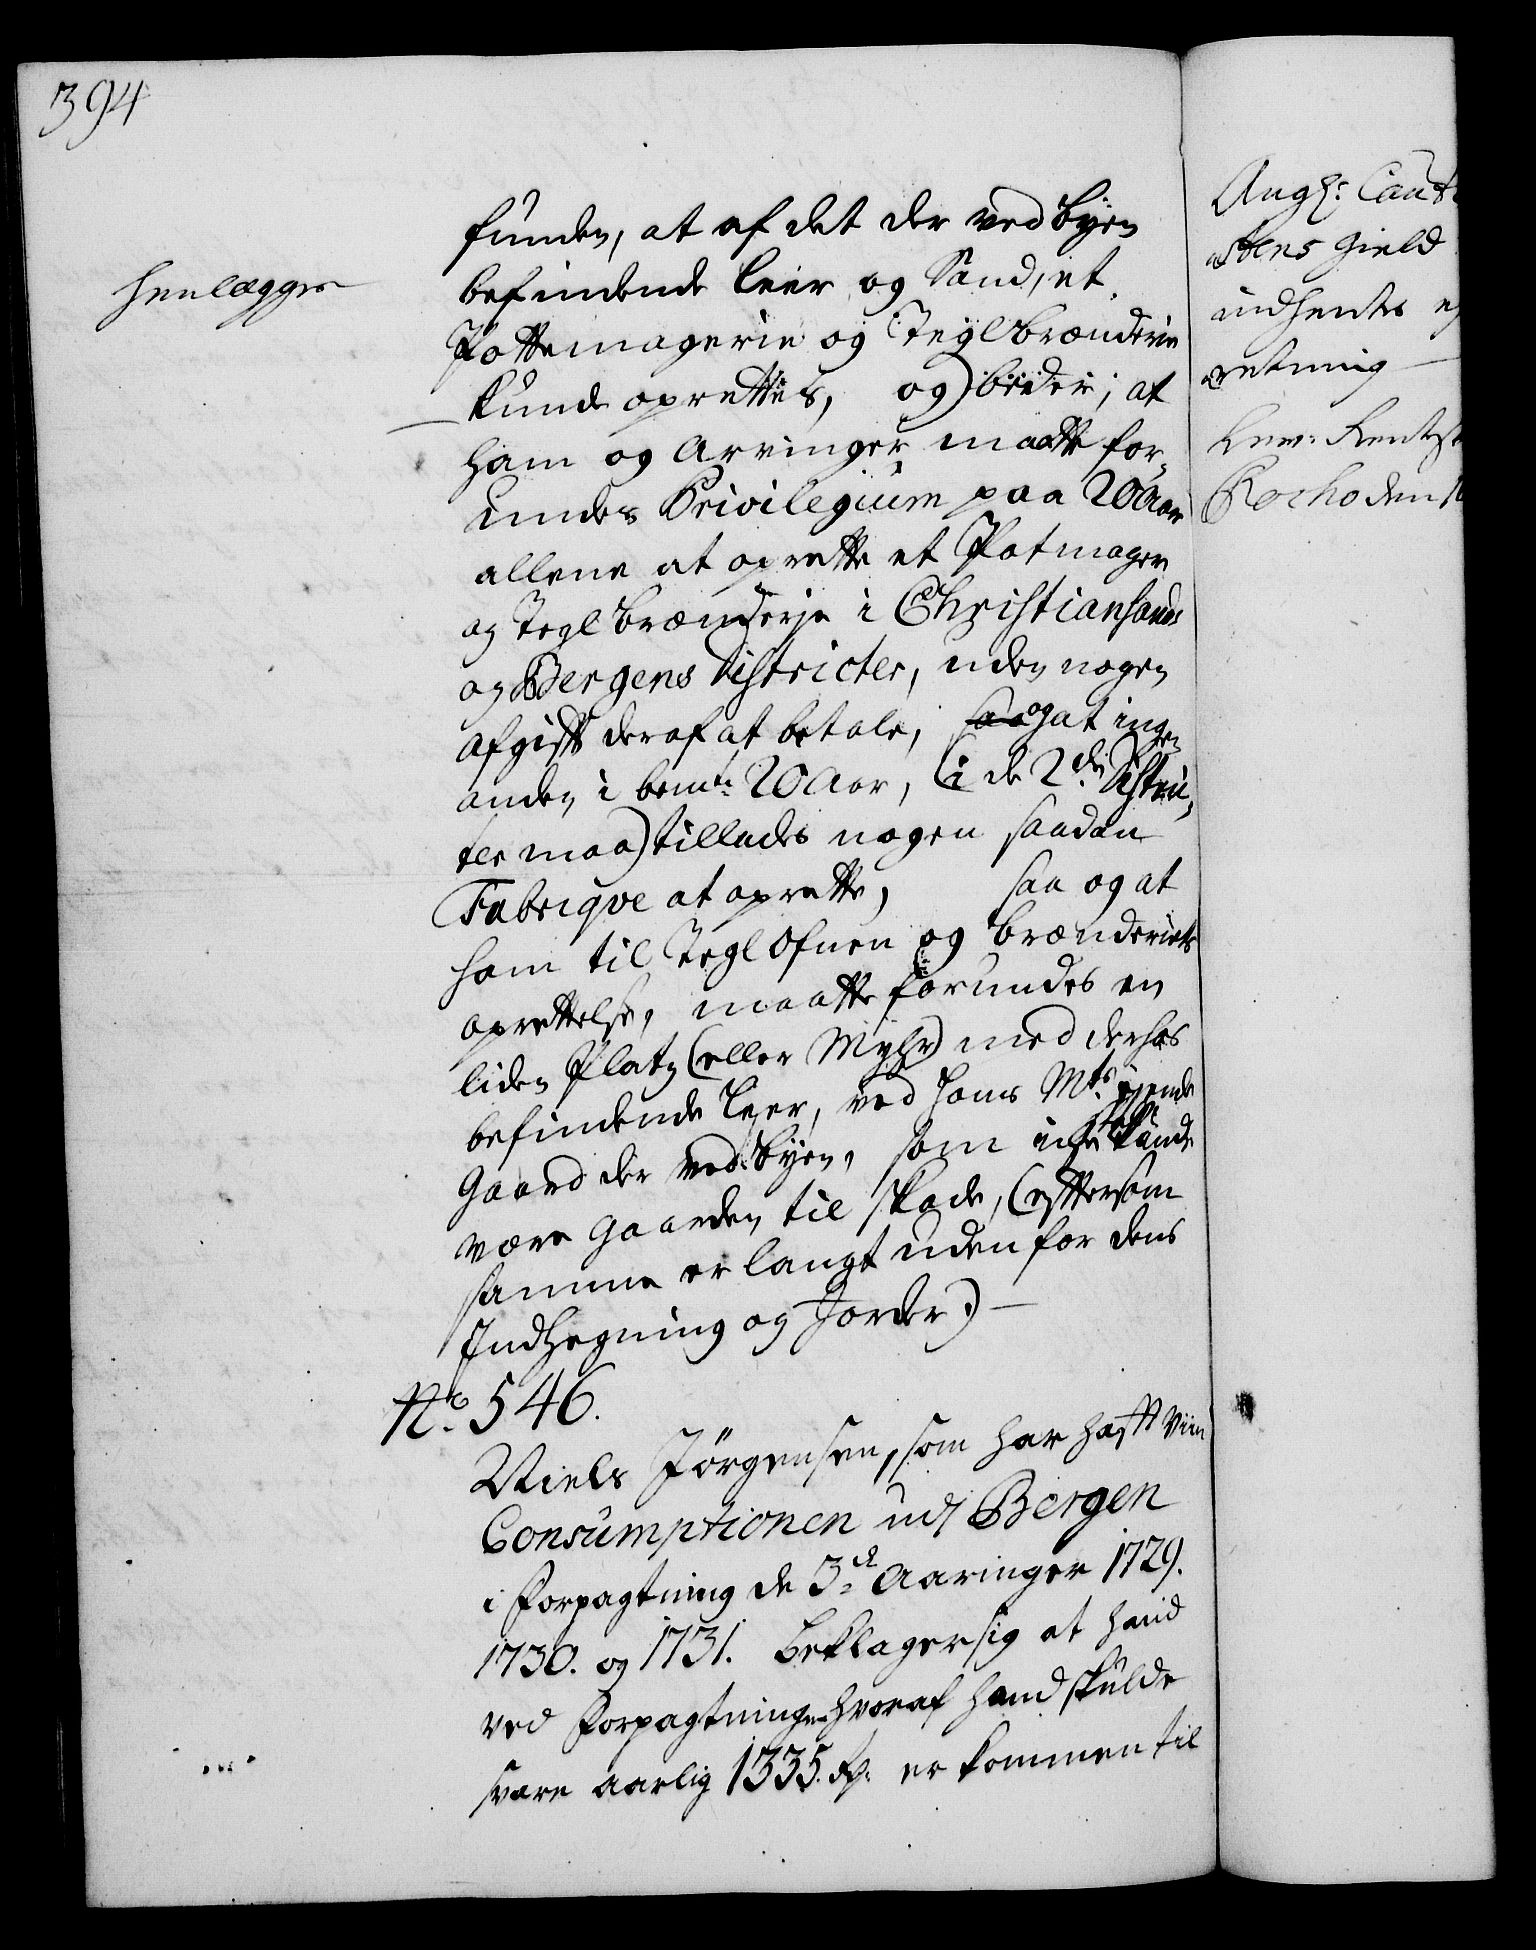 394
henlægges
funden, at af det der ved Byen
befindende Leer og Sand, et
Pottemagerie og Teglbrænderie
kunde oprettes, og beder; at
ham og Arvinger maatte for-
undes Privilegium paa 20 Aar
allene at oprette et Potmager
og Teglbrænderje i Christiansands
og Bergens Districter, uden nogen
afgift deraf at betale, og at ingen
anden i bemte 20 Aar, (i de 2de Distric-
ter maa) tillades nogen saadan
Fabriqve at oprette, saa og at
ham til Teglofnen og brænderiets
oprettelse, maatte forundes en
liden Platz (eller Myhr) med derhos
befindende Leer, ved Hans Mts. ejende
Gaard der ved Byen, som icke kunde
være Gaarden til skade, (eftersom
samme er langt uden for dens
Indhegning og Jorder)
No. 546.
Niels Jørgensen, som har hafft Viin
Consumptionen udj Bergen
i Forpagtning de 3de Aaringer 1729.
1730. og 1731. beklager sig at hand
ved Forpagtningen hvoraf hand skulde
svare aarlig 1335. Rd. er kommen til
Angl: Caut
stens Gield
indhentes
retning
Lev: Rentzs
Rocho den